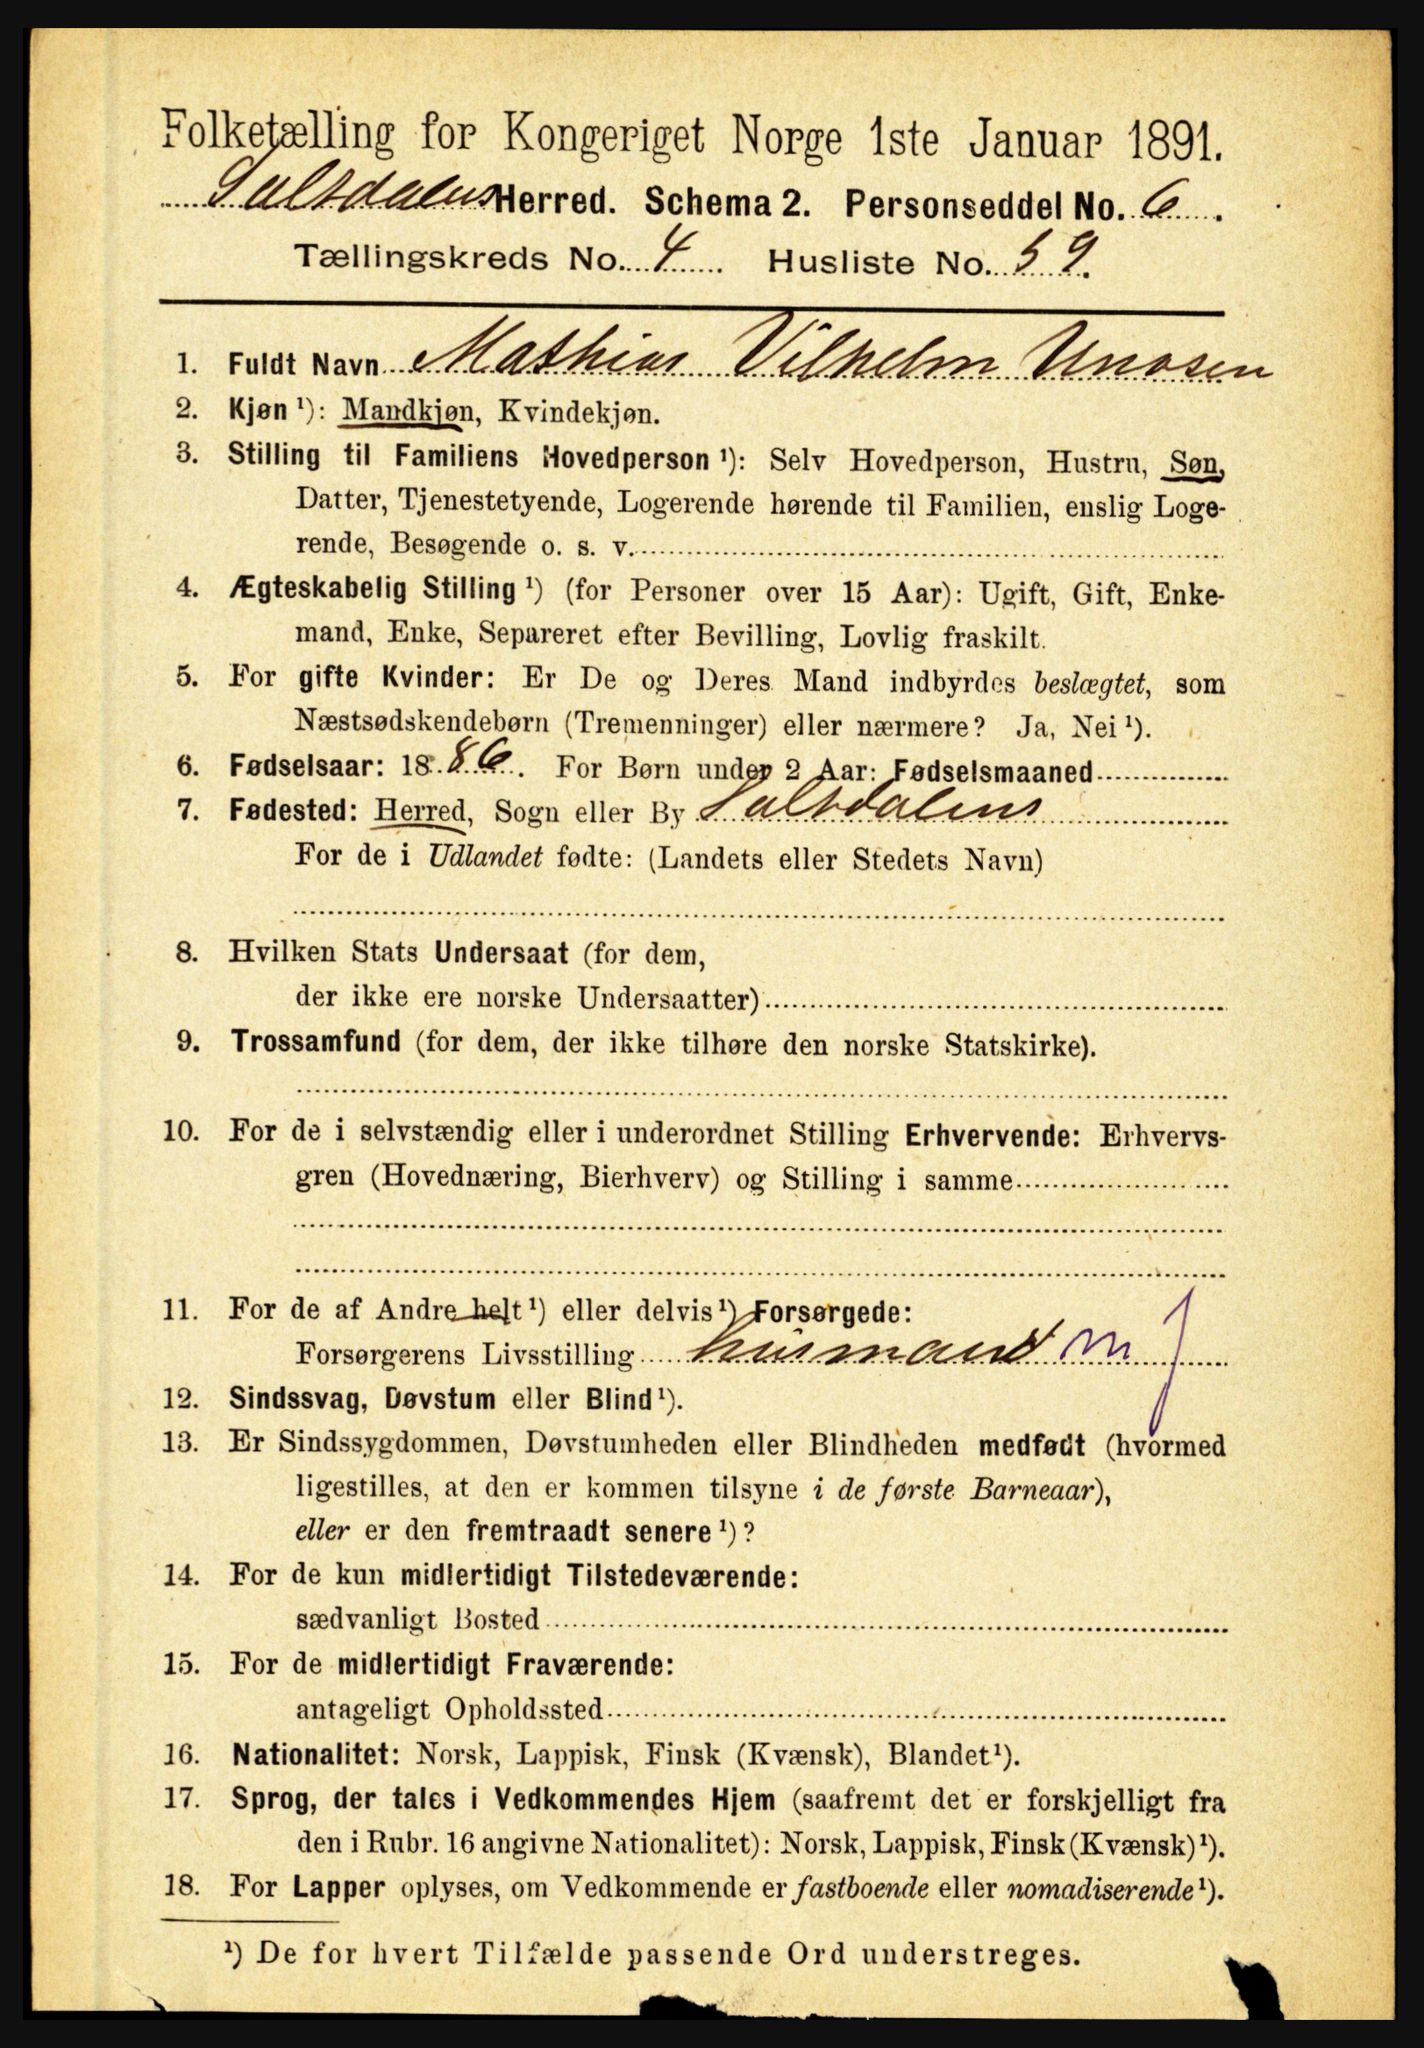 Folketælling for Kongeriget Norge 1ste Januar 1891.
Saltdalens Herred. Schema 2. Personseddel No. 6.
Tællingskreds No. 4 Husliste No. 59.
1. Fuldt Navn Mathias Vilhelm Unosen
2. Kjøn ¹): Mandkjøn, Kvindekjøn.
3. Stilling til Familiens Hovedperson ¹): Selv Hovedperson, Hustru, Søn,
Datter, Tjenestetyende, Logerende hørende til Familien, enslig Loge-
rende, Besøgende o. s. v.
4. Ægteskabelig Stilling ¹) (for Personer over 15 Aar): Ugift, Gift, Enke-
mand, Enke, Separeret efter Bevilling, Lovlig fraskilt.
5. For gifte Kvinder: Er De og Deres Mand indbyrdes beslægtet, som
Næstsødskendebørn (Tremenninger) eller nærmere? Ja, Nei ¹).
6. Fødselsaar: 1886. For Børn under 2 Aar: Fødselsmaaned
7. Fødested: Herred, Sogn eller By Saltdalens
For de i Udlandet fødte: (Landets eller Stedets Navn)
8. Hvilken Stats Undersaat (for dem,
der ikke ere norske Undersaatter)
9. Trossamfund (for dem, der ikke tilhøre den norske Statskirke).
10. For de i selvstændig eller i underordnet Stilling Erhvervende: Erhvervs-
gren (Hovednæring, Bierhverv) og Stilling i samme
11. For de af Andre helt ¹) eller delvis ¹) Forsørgede:
Forsørgerens Livsstilling husmand m J
12. Sindssvag, Døvstum eller Blind ¹).
13. Er Sindssygdommen, Døvstumheden eller Blindheden medfødt (hvormed
ligestilles, at den er kommen tilsyne i de første Barneaar),
eller er den fremtraadt senere ¹)?
14. For de kun midlertidigt Tilstedeværende:
sædvanligt Bosted
15. For de midlertidigt Fraværende:
antageligt Opholdssted
16. Nationalitet: Norsk, Lappisk, Finsk (Kvænsk), Blandet ¹).
17. Sprog, der tales i Vedkommendes Hjem (saafremt det er forskjelligt fra
den i Rubr. 16 angivne Nationalitet): Norsk, Lappisk, Finsk (Kvænsk) ¹).
18. For Lapper oplyses, om Vedkommende er fastboende eller nomadiserende ¹).
¹) De for hvert Tilfælde passende Ord understreges.